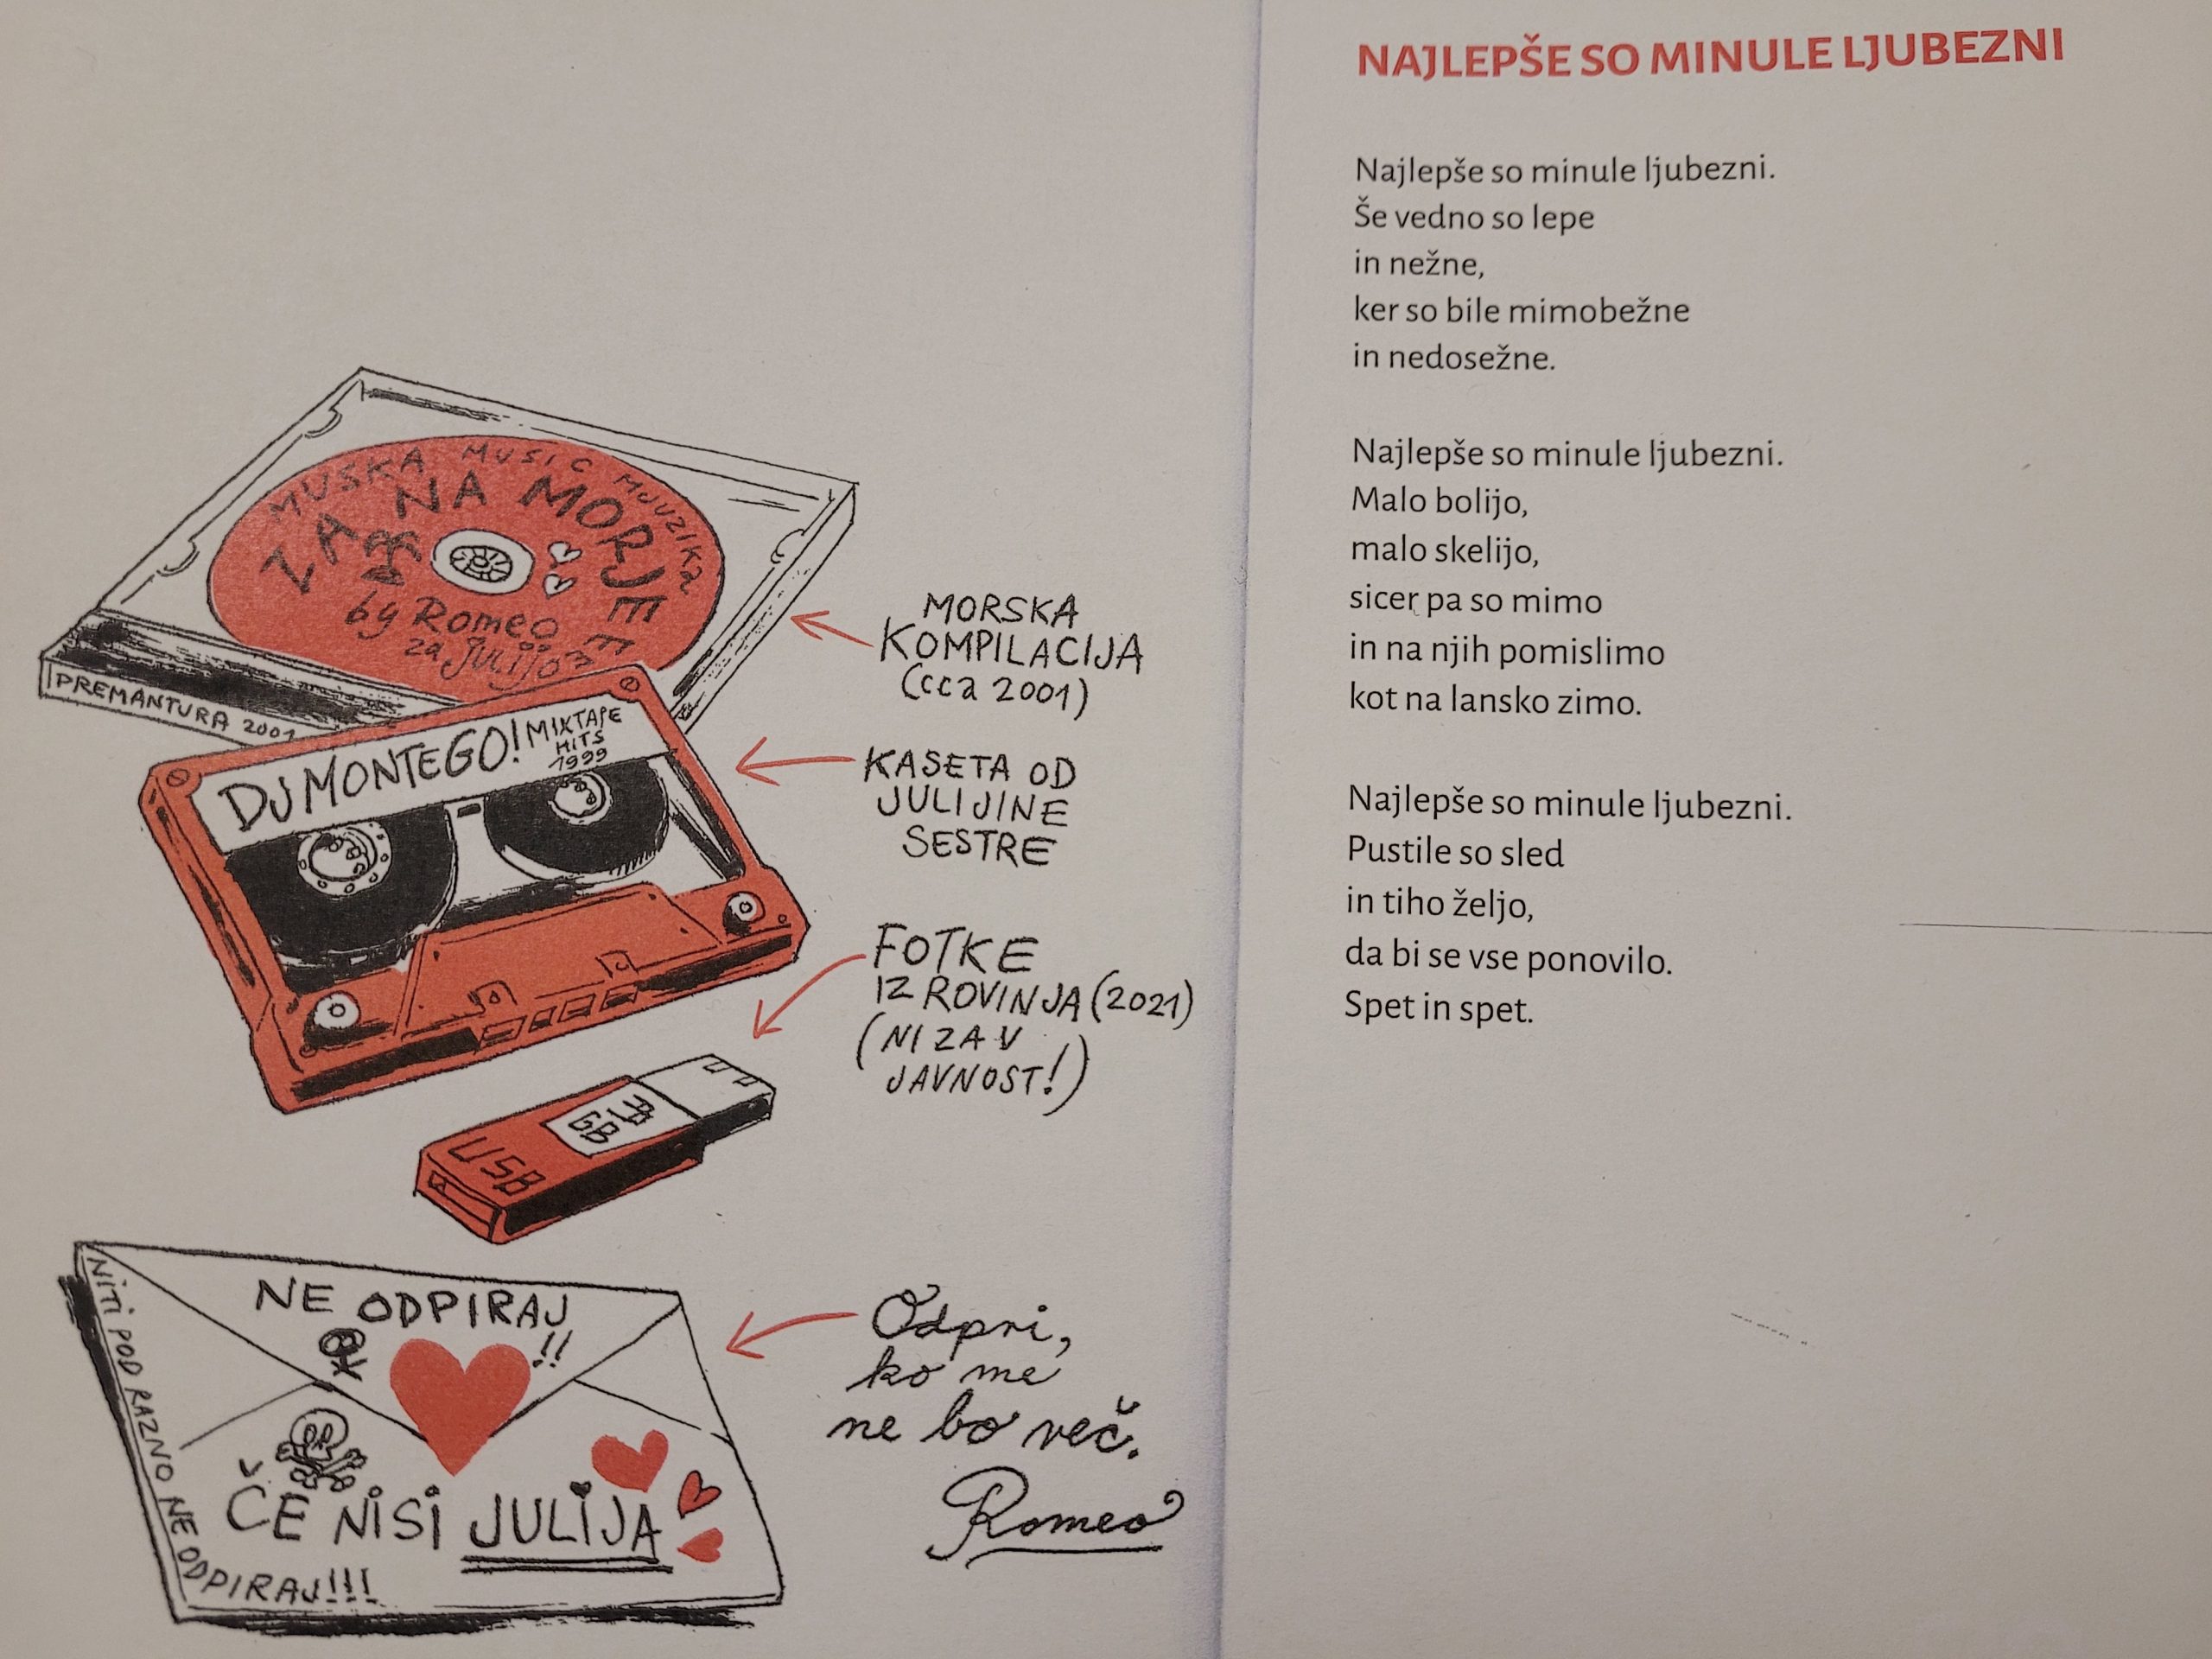 MUSKA MUSIC MJUZIKA
ZA NA MORJEEE
by Romeo
za Julijo
PREMANTURA 2001
MORSKA
KOMPILACIJA
(cca 2001)
DJ MONTEGO! MIXTAPE
HITS
1999
KASETA OD
JULIJINE
SESTRE
FOTKE
IZ ROVINJA (2021)
(NI ZA V
JAVNOST!)
GB
USB
NE ODPIRAJ
!!
ČE NISI JULIJA
NITI POD RAZNO NE ODPIRAJ!!!
Odpri,
ko me
ne bo več.
Romeo
NAJLEPŠE SO MINULE LJUBEZNI
Najlepše so minule ljubezni.
Še vedno so lepe
in nežne,
ker so bile mimobežne
in nedosežne.
Najlepše so minule ljubezni.
Malo bolijo,
malo skelijo,
sicer pa so mimo
in na njih pomislimo
kot na lansko zimo.
Najlepše so minule ljubezni.
Pustile so sled
in tiho željo,
da bi se vse ponovilo.
Spet in spet.